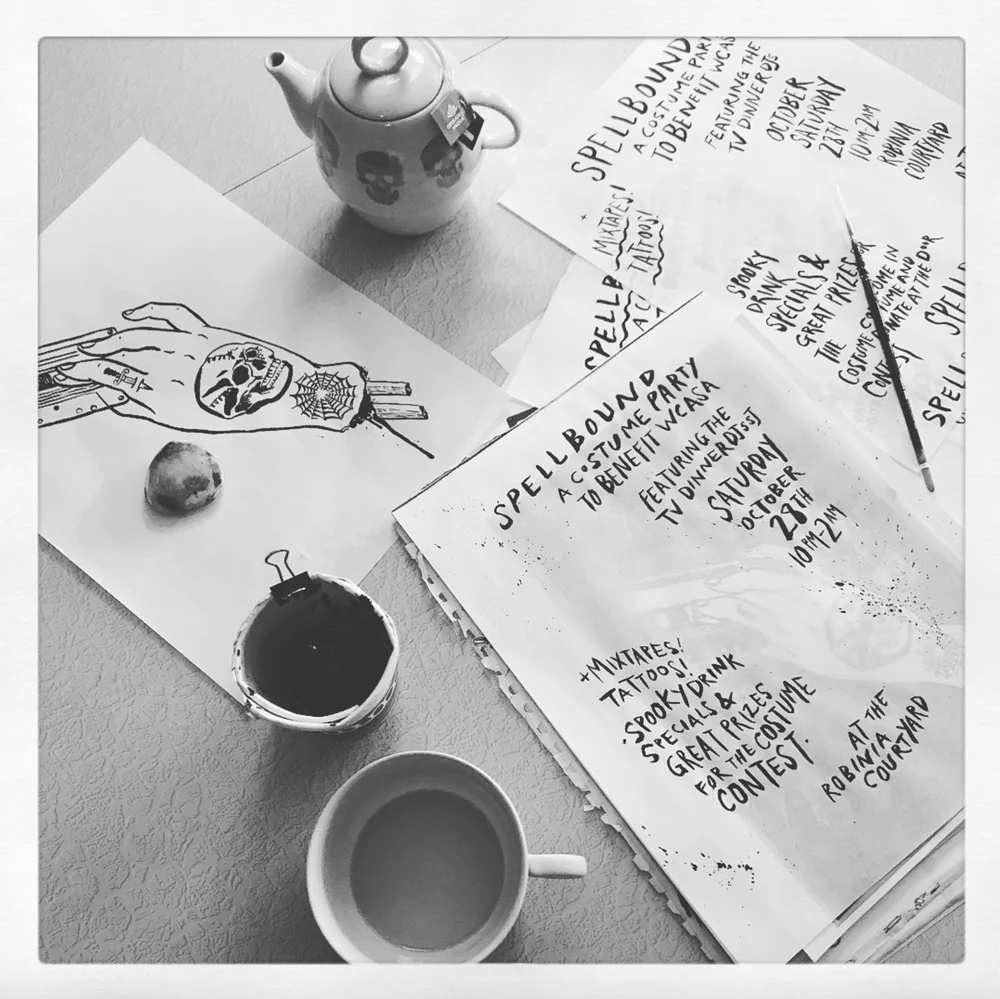 SPELLBOUND
A COSTUME PARTY
TO BENEFIT WCASA
FEATURING THE
TV DINNER DJS
SATURDAY
OCTOBER
28TH
10PM-2AM
+MIXTAPES!
TATTOOS!
·SPOOKY DRINK
SPECIALS &
GREAT PRIZES
FOR THE COSTUME
CONTEST.
AT THE
ROBINIA
COURTYARD
SPELLBOUND
A COSTUME PART
TO BENEFIT WCAS
FEATURING THE
TV DINNER DJS
OCTOBER
SATURDAY
28TH
10PM-2AM
ROBINIA
COURTYARD
AT
+ MIXTAPES!
TATTOOS!
SPELLB
A CO
SPOOKY
DRINK
SPECIALS &
GREAT PRIZES
THE
COSTUME
COME IN
COSTUME AND
AT THE DOOR
SPELL
SPELL